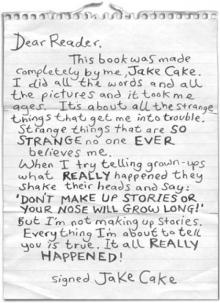 Dear Reader,
This book was made
completely by me, Jake Cake.
I did all the words and all
the pictures and it took me
ages. Its about all the strange
things that get me into trouble.
Strange things that are SO
STRANGE no one EVER
believes me.
When I try telling grown-ups
what REALLY happened they
shake their heads and say:
'DON'T MAKE UP STORIES OR
YOUR NOSE WILL GROW LONG!'
But I'm not making up stories.
Everything I'm about to tell
you is true. It all REALLY
HAPPENED!
signed Jake Cake